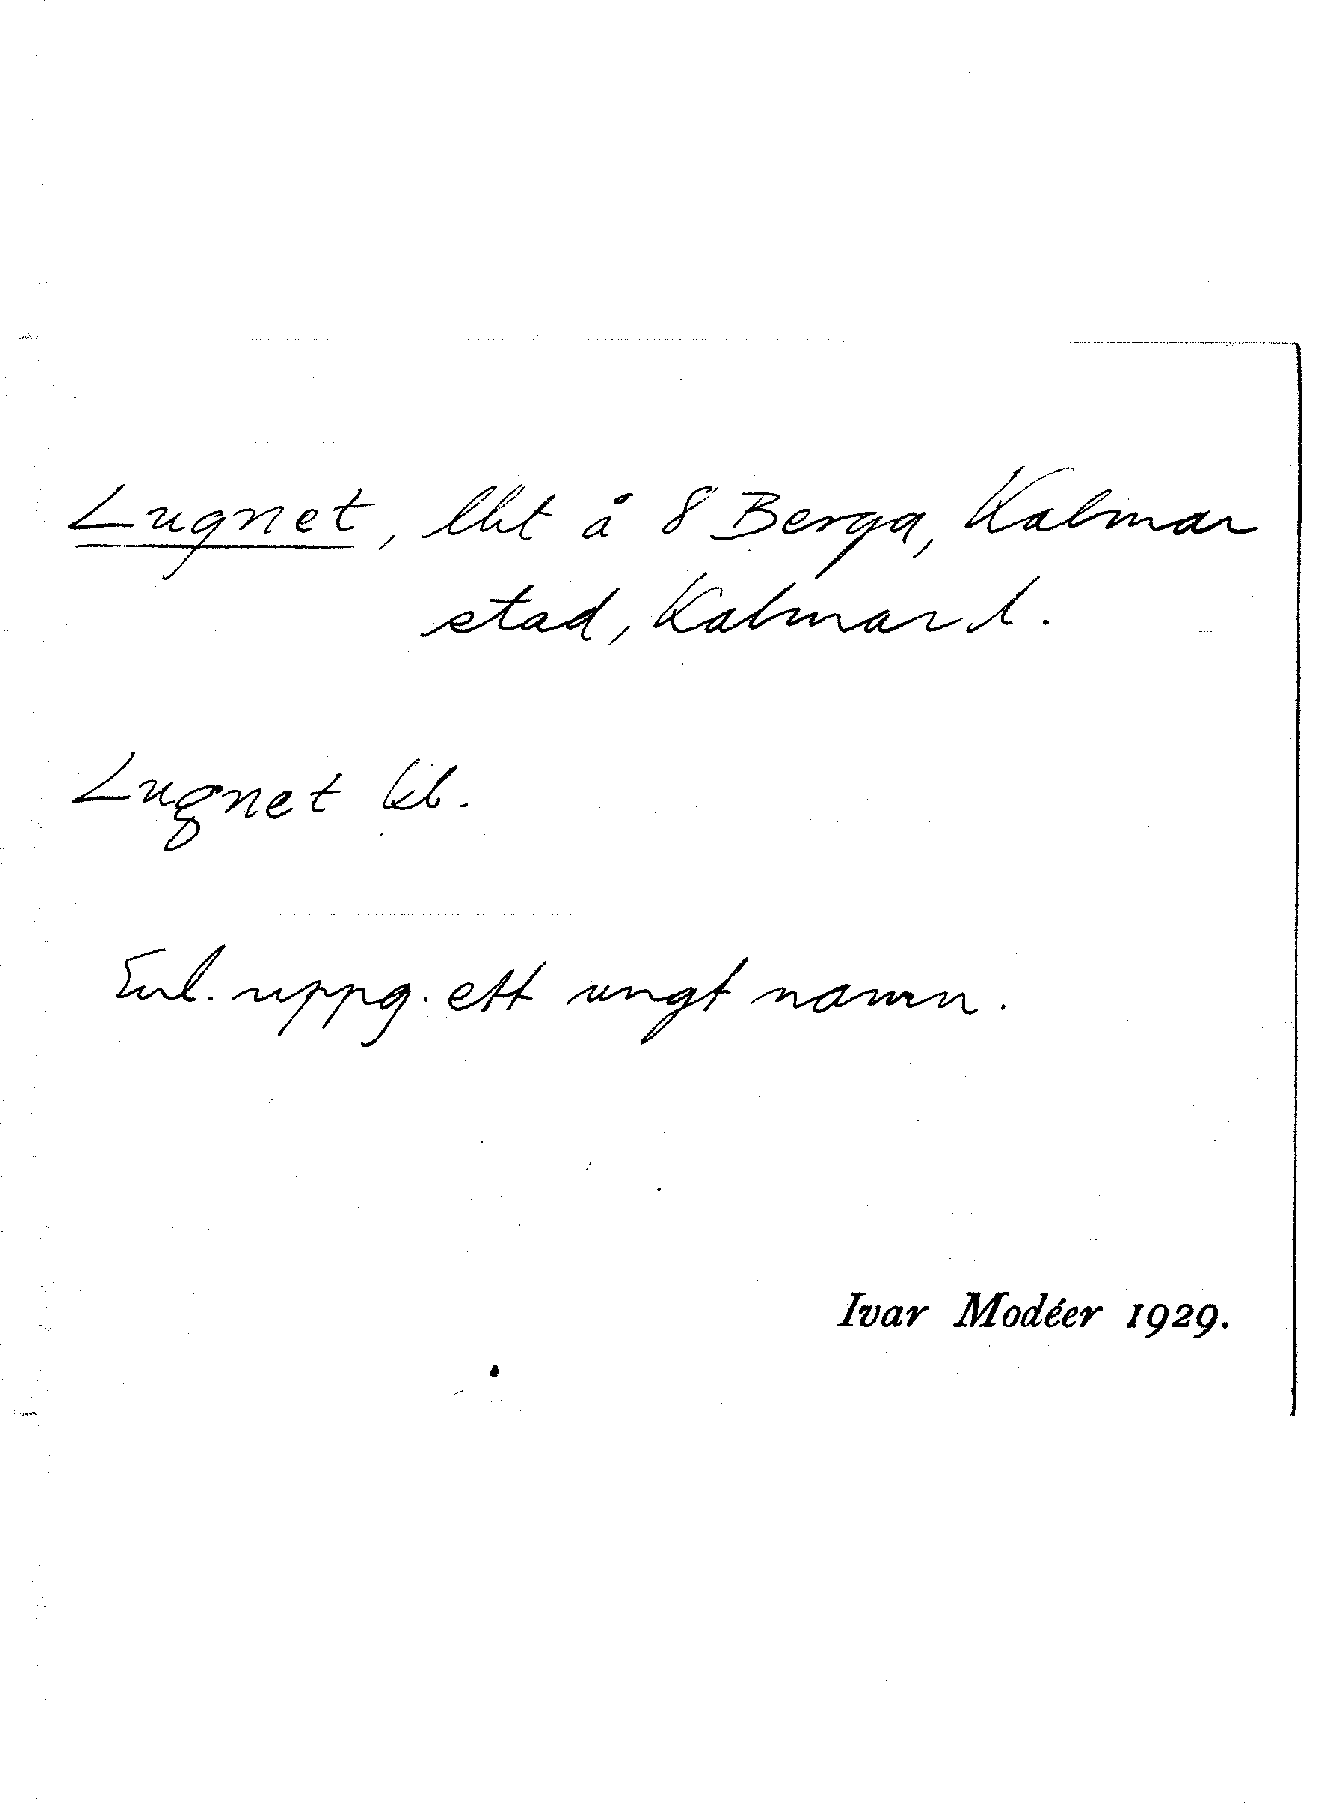 Lugnet, lht å 8 Berga, Kalmar
stad, Kalmar l.
Lugnet kb.
Enl. uppg. ett ungt namn.
Ivar Modéer 1929.